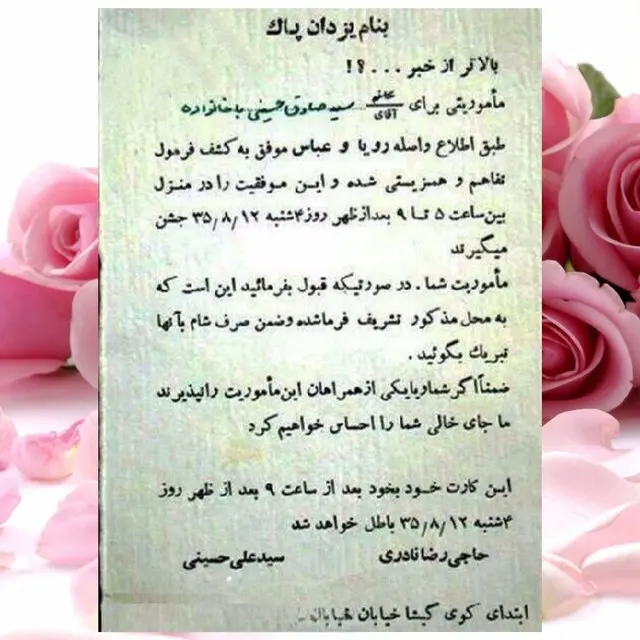 بنام یزدان پاک
بالاتر از خبر . . . ؟ !
مأموریتی برای خانم آقای سید صادق حسینی باخانواده
طبق اطلاع واصله رویا و عباس موفق به کشف فرمول
تفاهم و همزیستی شده و این موفقیت را در منزل
بین ساعت ۵ تا ۹ بعدازظهر روز ۴شنبه ۳۵/۸/۱۲ جشن
میگیرند
مأموریت شما . در صورتیکه قبول بفرمائید این است که
به محل مذکور تشریف فرما شده و ضمن صرف شام بآنها
تبریک بگوئید .
ضمناً اگر شما و یا یکی از همراهان این مأموریت را نپذیرند
ما جای خالی شما را احساس خواهیم کرد
این کارت خود بخود بعد از ساعت ۹ بعد از ظهر روز
۴شنبه ۳۵/۸/۱۲ باطل خواهد شد
حاجی رضا نادری سید علی حسینی
ابتدای کوی گیشا خیابان